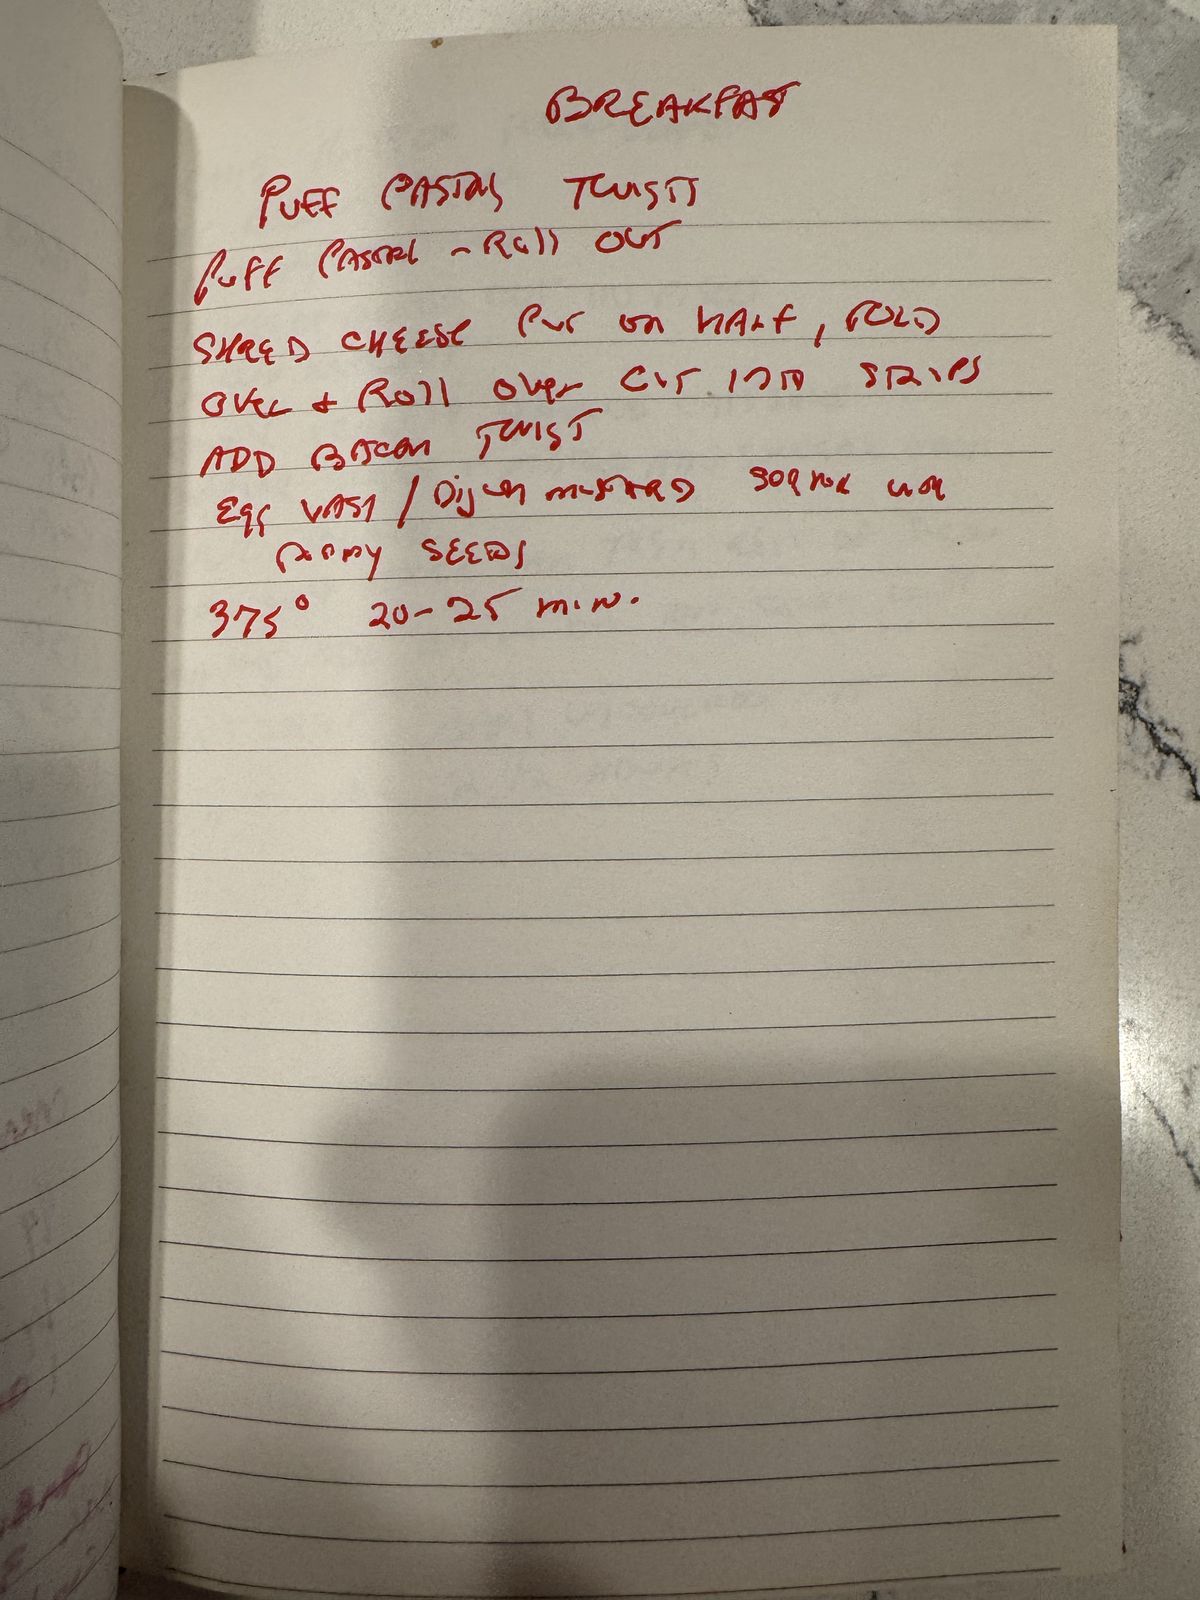 BREAKFAST
PUFF PASTRY TWISTS
PUFF PASTRY - Roll OUT
SHRED CHEESE PUT ON HALF, FOLD
OVER + Roll OVER CUT INTO STRIPS
ADD BACON TWIST
Egg WASH / Dijon MUSTARD
POPPY SEEDS
375° 20-25 MIN.